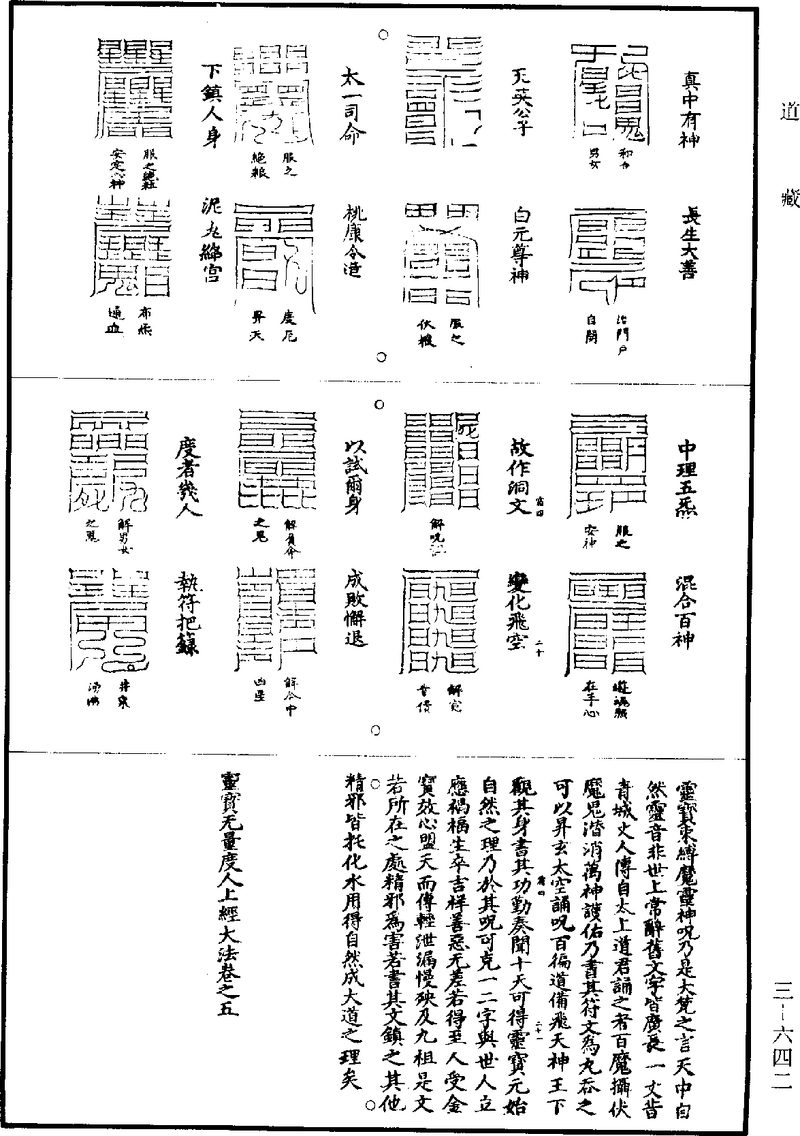 道藏
真中有神
和合
男女
長生大善
治門戶
自開
无英公子
白元尊神
服之
伏椒
太一司命
服之
絶粮
桃康合延
度厄
昇天
下鎮人身
安定心神
泥丸絳宮
布炁
通血
中理五炁
服之
安神
混合百神
在手心
故作洞文
解呪
變化飛空
解冤
以試爾身
之鬼
成敗懈退
凶星
度者幾人
解男女
之鬼
執符把籙
井泉
湧沸
靈寶束縛魔靈神呪乃是大梵之言天中自
然靈音非世上常辭舊文字皆廣長一丈昔
青城丈人傳自太上道君誦之者百魔攝伏
魔鬼潜消萬神護佑乃書其符文為丸吞之
可以昇玄太空誦呪百徧道備飛天神王下
觀其身書其功勤奏聞十天可得靈寶元始
自然之理乃於其呪可克一二字與世人立
應禍福生卒吉祥善惡无差若得至人受金
寶效心盟天而傳輕泄漏慢殃及九祖是文
若所在之處精邪為害若書其文鎮之其他
精邪皆托化水用得自然成大道之理矣
靈寶无量度人上經大法卷之五
三—六四二